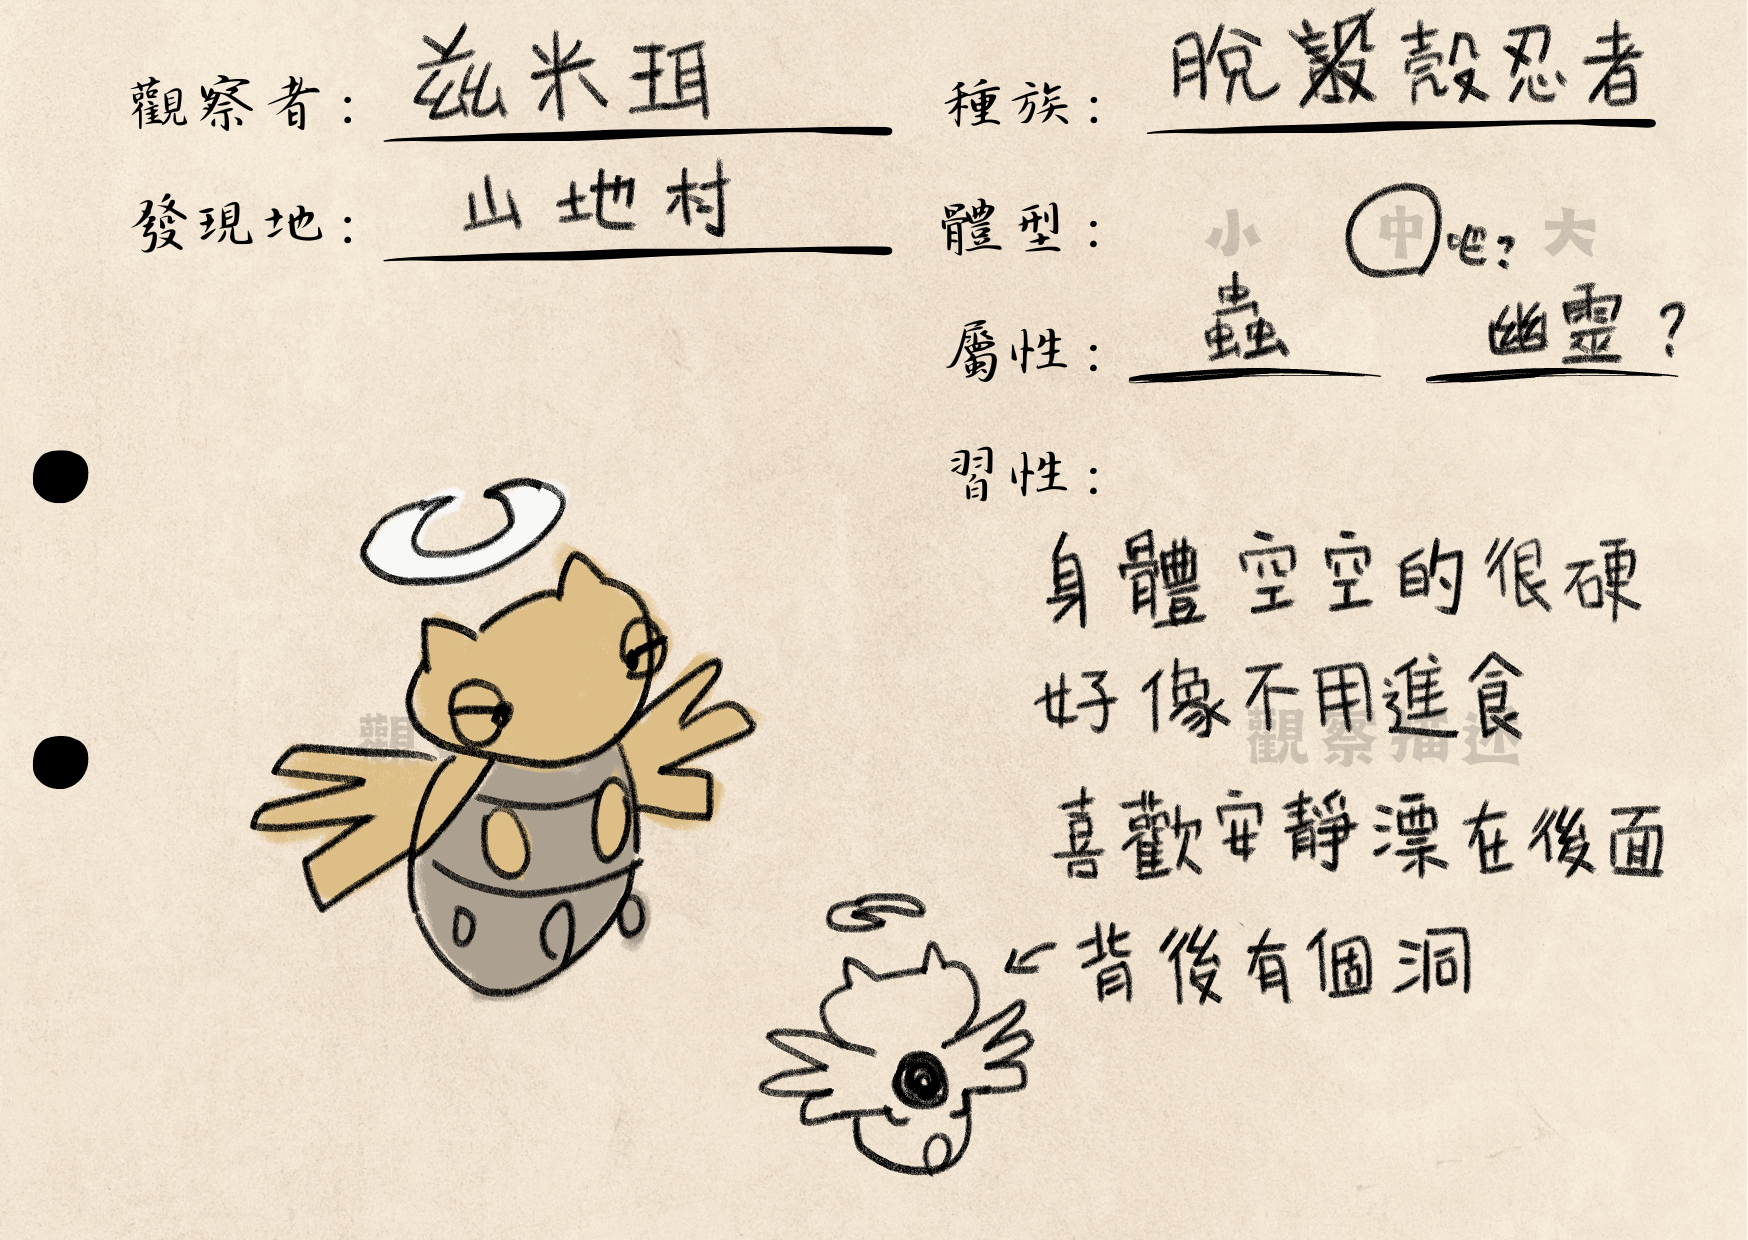 觀察者： 茲米珥
種族： 脫殼忍者
發現地： 山地村
體型： 小 中 吧? 大
屬性： 蟲 幽靈?
習性：
身體空空的很硬
好像不用進食
觀
觀察描述
喜歡安靜漂在後面
背後有個洞